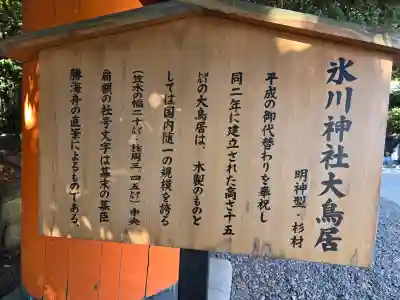 氷川神社大鳥居
明神型・杉材
平成の御代替わりを奉祝し
同二年に建立された高さ十五
㍍の大鳥居は、木製のものと
しては国内随一の規模を誇る
(笠木の幅二十一㍍・柱周三・四五㍍) 中央
扁額の社号文字は幕末の幕臣
勝海舟の直筆によるものである。